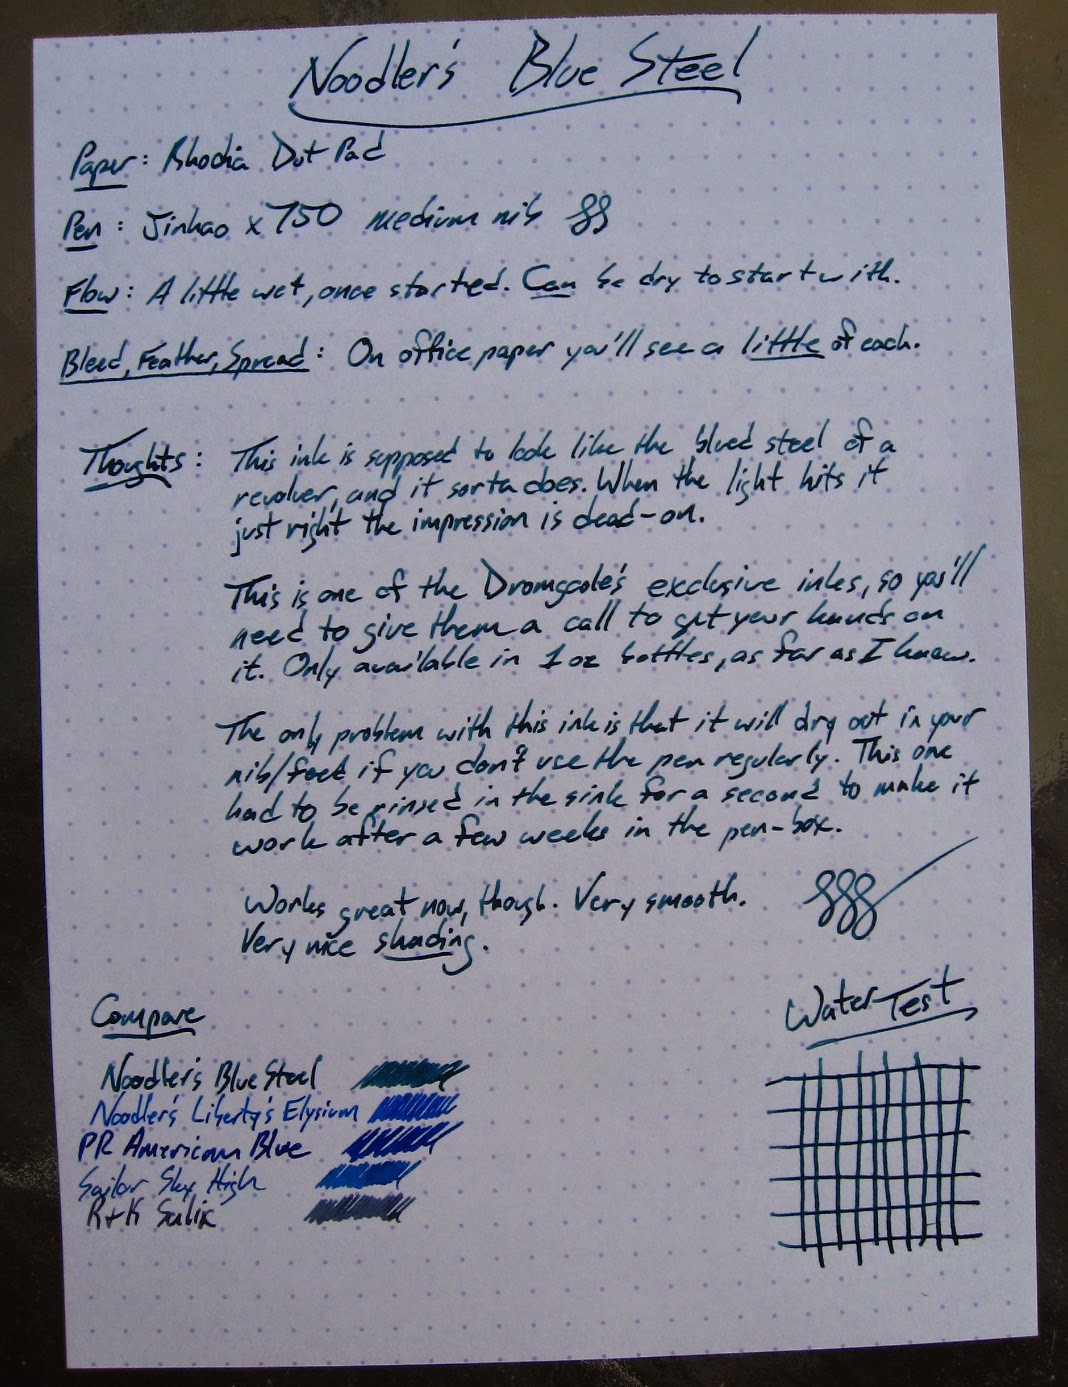 Noodler's Blue Steel
Paper: Rhodia Dot Pad
Pen: Jinhao x750 medium nib
Flow: A little wet, once started. Can be dry to start with.
Bleed, Feather, Spread: On office paper you'll see a little of each.
Thoughts: This ink is supposed to look like the blued steel of a
revolver, and it sorta does. When the light hits it
just right the impression is dead-on.
This is one of the Dromgoole's exclusive inks, so you'll
need to give them a call to get your hands on
it. Only available in 1 oz bottles, as far as I know.
The only problem with this ink is that it will dry out in your
nib/feed if you don't use the pen regularly. This one
had to be rinsed in the sink for a second to make it
work after a few weeks in the pen-box.
Works great now, though. Very smooth.
Very nice shading.
Compare
Water Test
Noodler's Blue Steel
Noodler's Liberty's Elysium
PR American Blue
Sailor Sky High
R+K Salix